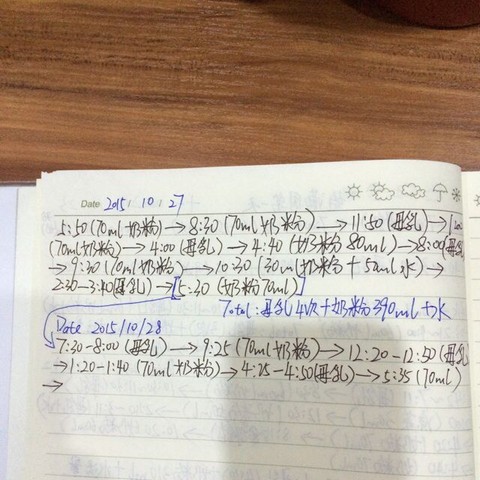 Date 2015 / 10 / 27
5:50 (70ml奶粉) → 8:30 (70ml奶粉) → 11:50 (母乳) →
(70ml奶粉) → 4:00 (母乳) → 4:40 (奶粉 80ml) → 8:00 (母乳
→ 9:30 (70ml奶粉) → 10:30 (30ml奶粉 + 50ml水) →
2:30-3:40(母乳) → [5:30 (奶粉70ml)]
Total: 母乳4次+奶粉390ml+水
Date 2015/10/28
7:30-8:00 (母乳) → 9:25 (70ml奶粉) → 12:20-12:50 (母乳
→ 1:20-1:40 (70ml奶粉) → 4:25-4:50(母乳) → 5:35 (70ml)
→